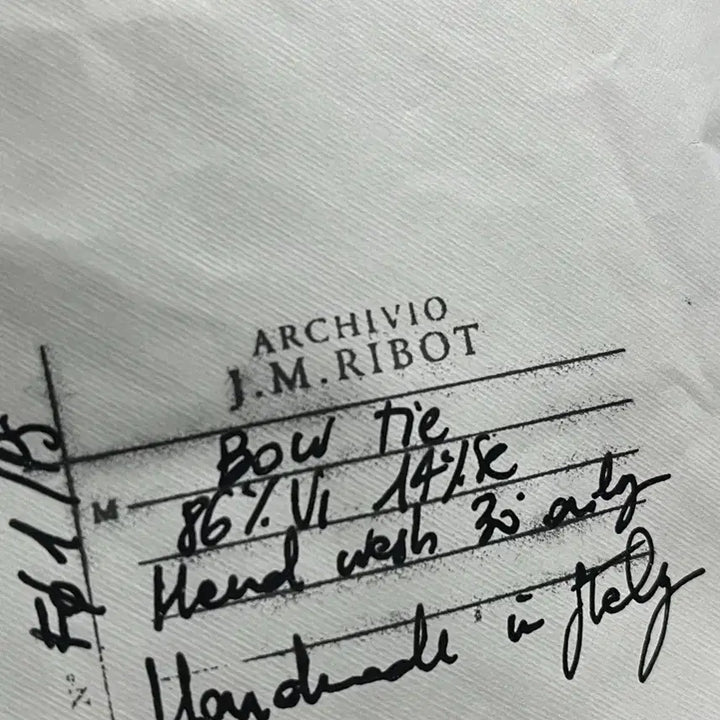 ARCHIVIO
J.M.RIBOT
Bow tie
M
86% Vi 14% Se
Hand wash 30° only
Handmade in Italy